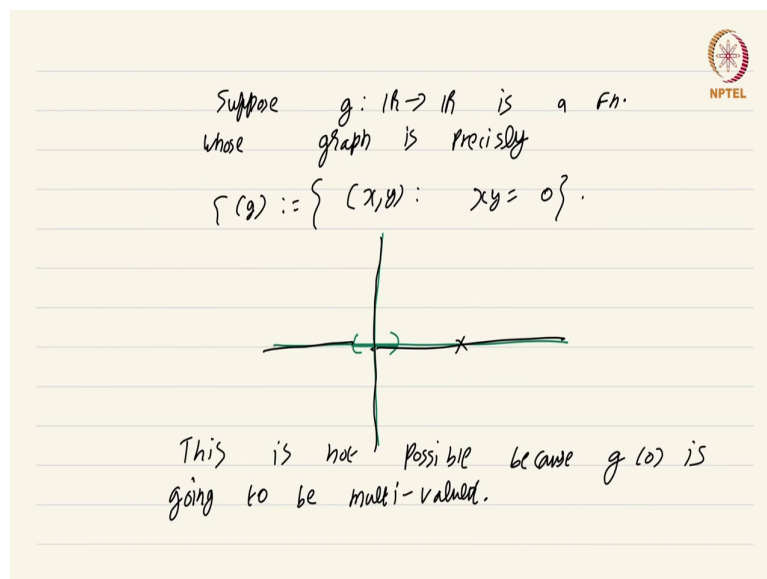 NPTEL
Suppose g: ℝ → ℝ is a Fn.
whose graph is Precisly
Γ(g) := { (x,y) : xy = 0}.
This is not possible because g(0) is
going to be multi-valued.